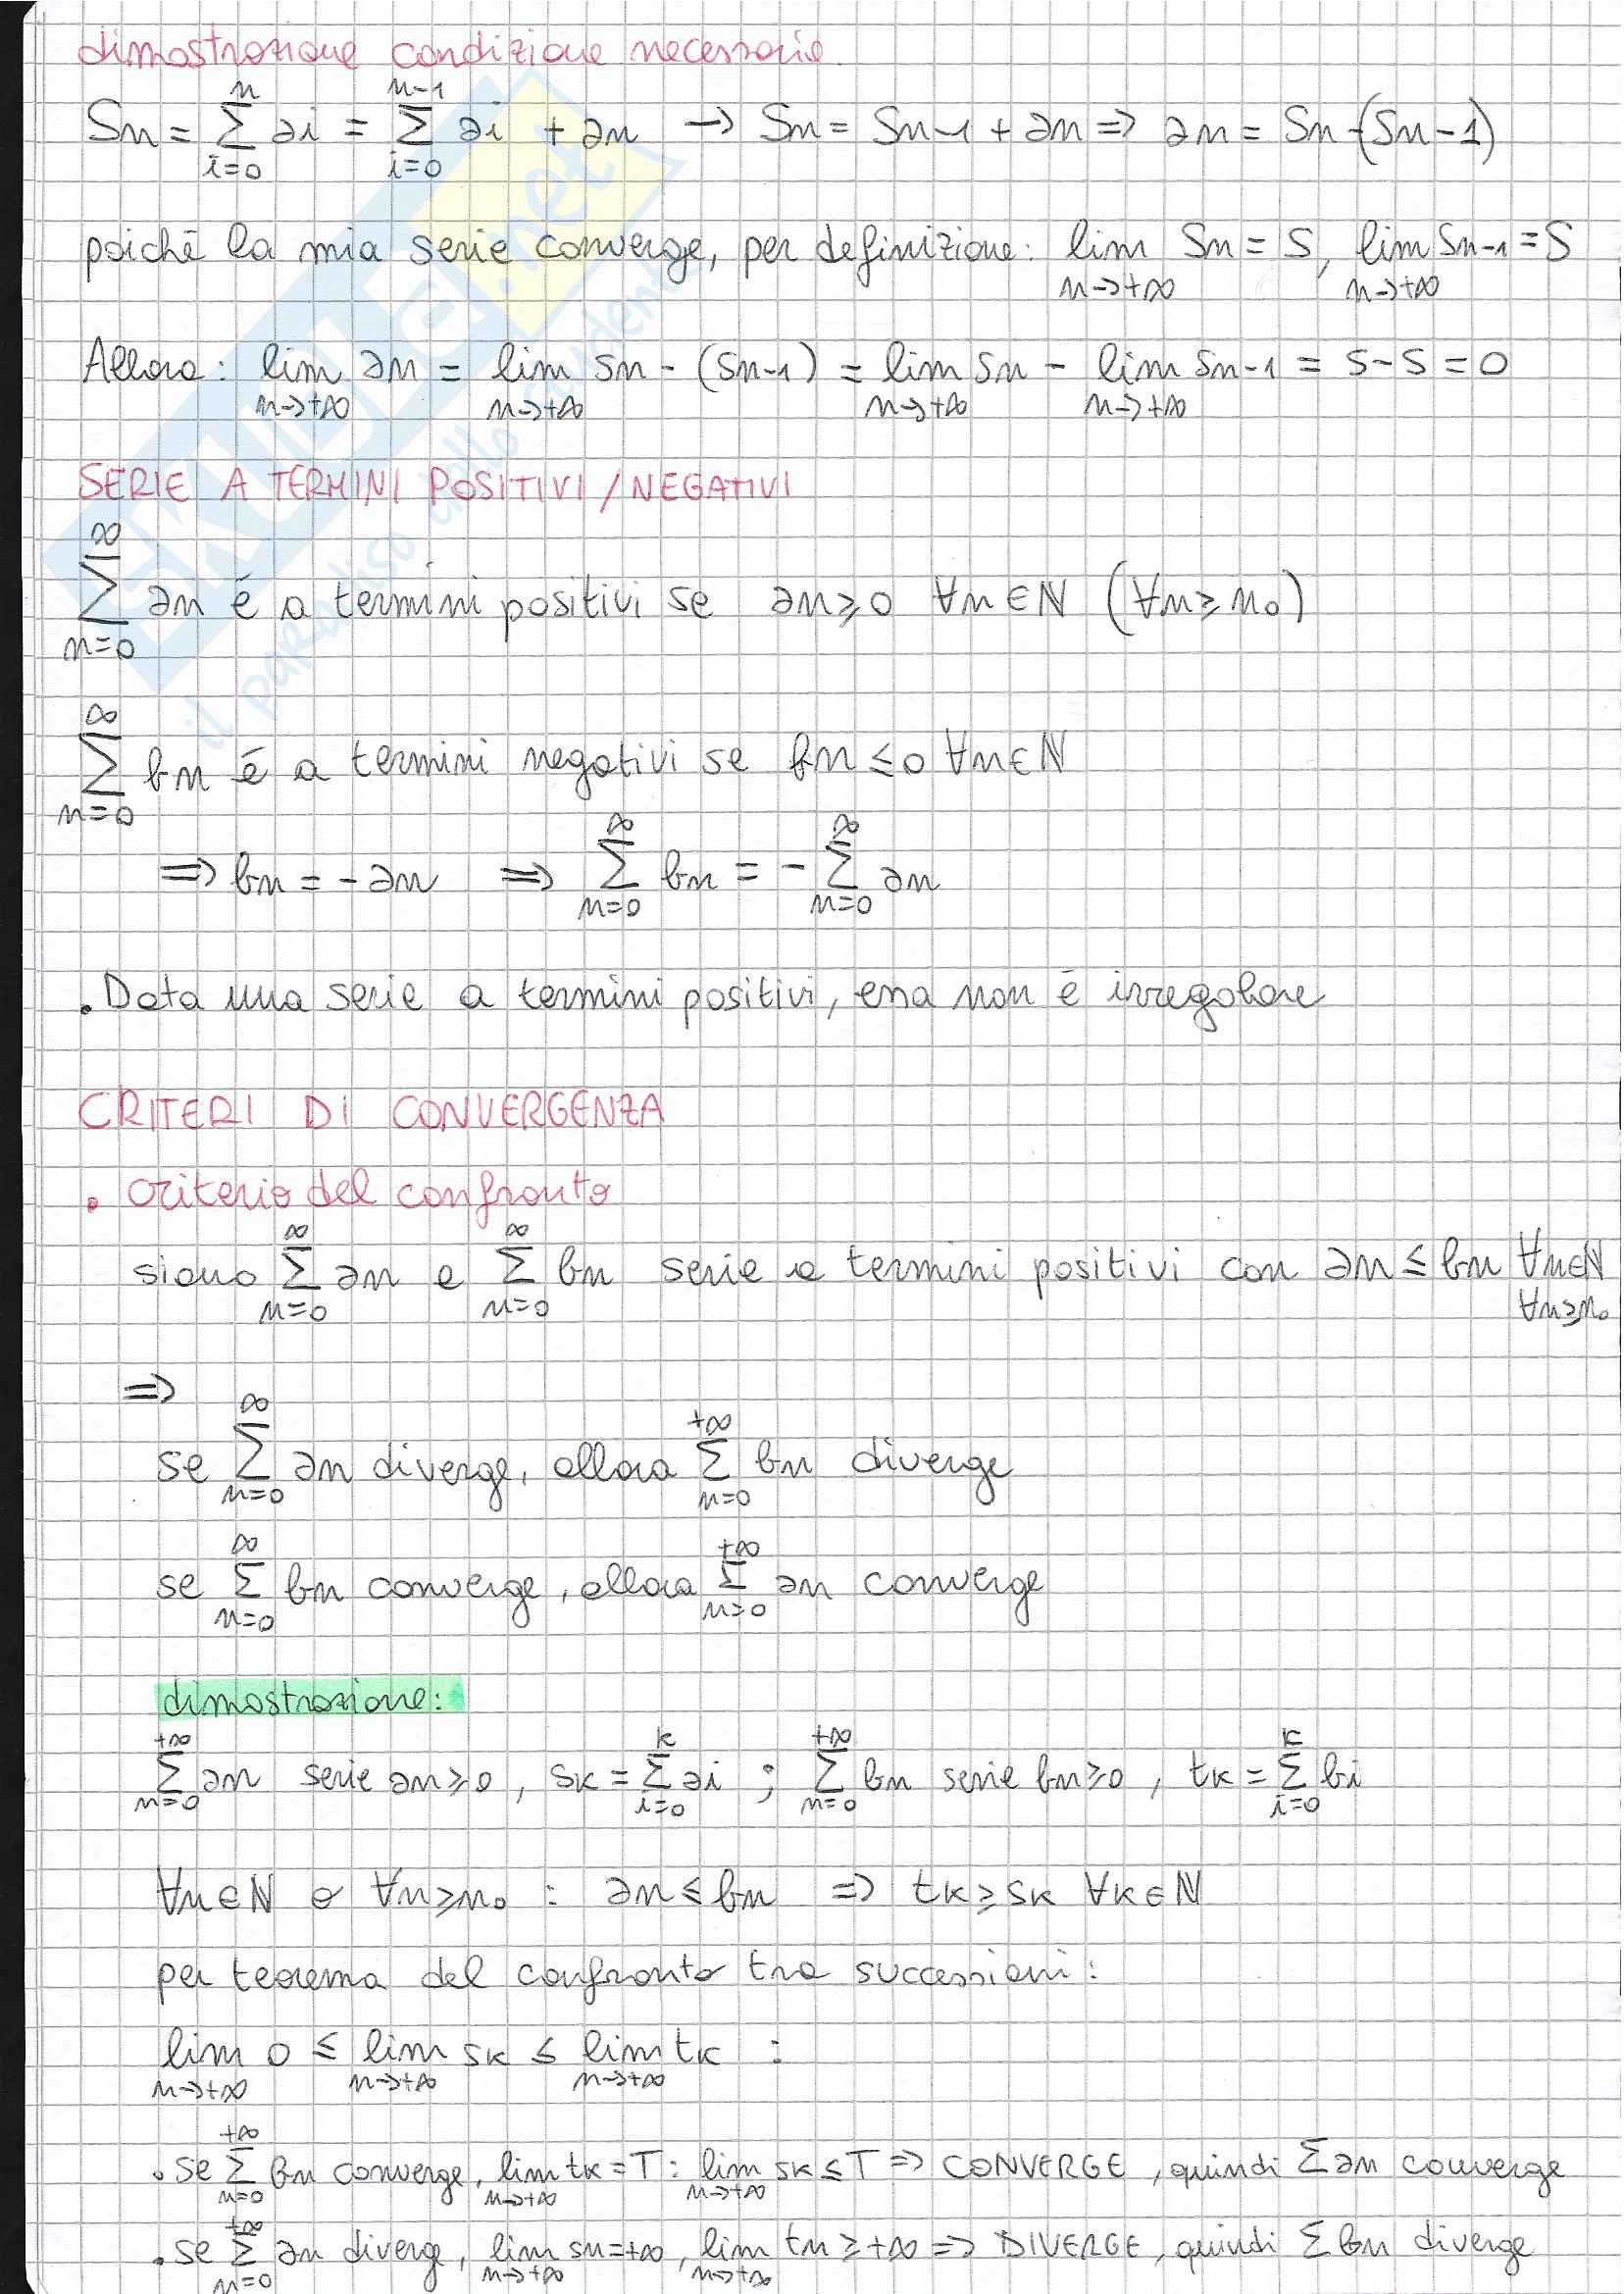 dimostrazione condizione necessaria.
Sn = ∑_{i=0}^{n} ai = ∑_{i=0}^{n-1} ai + an → Sn = Sn-1 + an ⇒ an = Sn - (Sn-1)
poiché la mia serie converge, per definizione: lim_{n→+∞} Sn = S, lim_{n→+∞} Sn-1 = S
Allora: lim_{n→+∞} an = lim_{n→+∞} Sn - (Sn-1) = lim_{n→+∞} Sn - lim_{n→+∞} Sn-1 = S-S = 0
SERIE A TERMINI POSITIVI/NEGATIVI
∑_{n=0}^{∞} an é a termini positivi se an ≥ 0 ∀n∈ℕ (∀n ≥ n₀)
∑_{n=0}^{∞} bn é a termini negativi se bn ≤ 0 ∀n∈ℕ
⇒ bn = -an ⇒ ∑_{n=0}^{∞} bn = - ∑_{n=0}^{∞} an
. Data una serie a termini positivi, essa non é irregolare
CRITERI DI CONVERGENZA
. criterio del confronto
siano ∑_{n=0}^{∞} an e ∑_{n=0}^{∞} bn serie a termini positivi con an ≤ bn ∀n∈ℕ
∀n≥n₀
⇒
se ∑_{n=0}^{∞} an diverge, allora ∑_{n=0}^{+∞} bn diverge
se ∑_{n=0}^{∞} bn converge, allora ∑_{n=0}^{+∞} an converge
dimostrazione:
∑_{n=0}^{+∞} an serie an ≥ 0, sk = ∑_{i=0}^{k} ai ; ∑_{n=0}^{+∞} bn serie bn ≥ 0, tk = ∑_{i=0}^{k} bi
∀n∈ℕ o ∀n≥n₀ : an ≤ bn ⇒ tk ≥ sk ∀k∈ℕ
per teorema del confronto tra successioni:
lim_{n→+∞} 0 ≤ lim_{n→+∞} sk ≤ lim_{n→+∞} tk :
. se ∑_{n=0}^{+∞} bn converge, lim_{n→+∞} tk = T : lim_{n→+∞} sk ≤ T ⇒ CONVERGE, quindi ∑ an converge
. se ∑_{n=0}^{+∞} an diverge, lim_{n→+∞} sn = +∞, lim_{n→+∞} tn ≥ +∞ ⇒ DIVERGE, quindi ∑ bn diverge